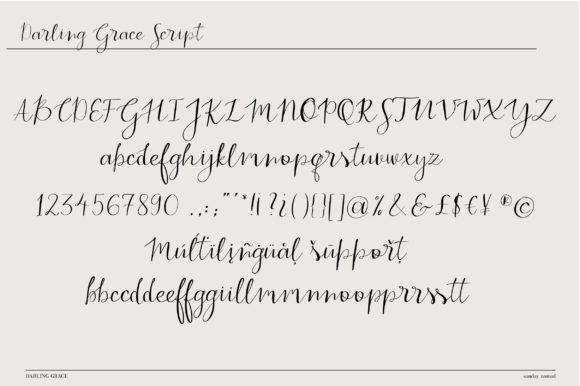 Darling Grace Script
ABCDEFGHIJKLMNOPQRSTUVWXYZ
abcdefghijklmnopqrstuvwxyz
1234567890 .,:;"'*!¡?¿(){}[]@%&&£$€¥®©
Múľtïlįñġüåļ šüppořţ
bbccddeeffggiillmmnnoopprrsstt
DARLING GRACE
sunday nomad